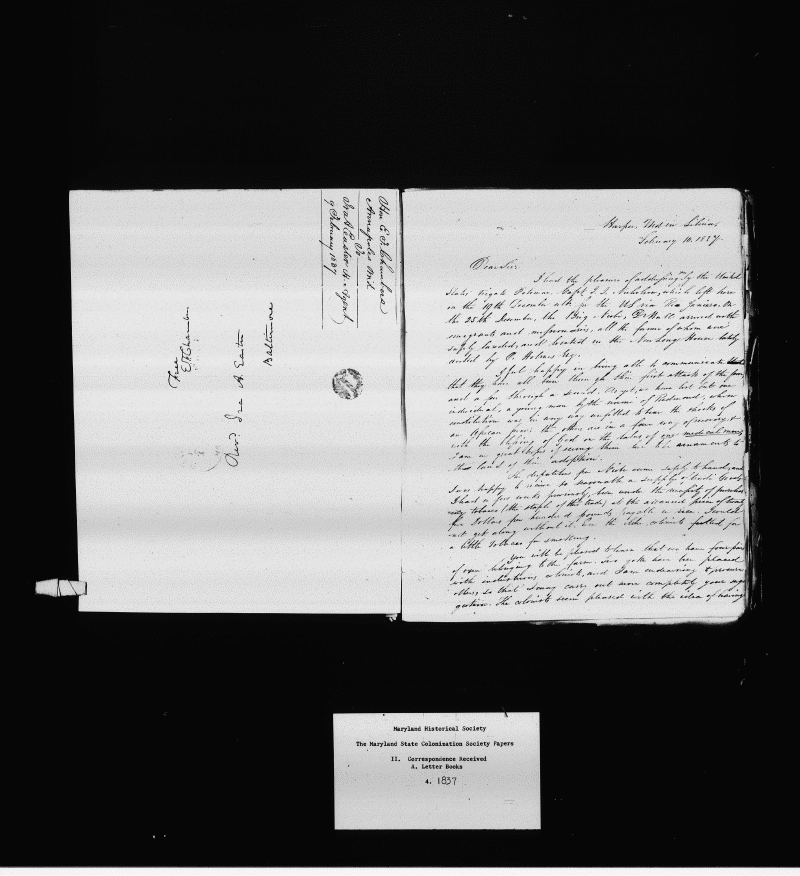 Hon E. F. Chambers
Annapolis Md
To
Ira A Easter H. Agent
9 February 1837
Free
EF Chambers
Revd. Ira A. Easter
Baltimore
Harper, Md in Liberia,
February 10. 1837.
Dear Sir
I had the pleasure of addressing you by the United
States frigate Potomac. Capt J. J. Nicholson, which left here
on the 19th December ulto for the US. via Rio Janeiro. On
the 25th December, the Brig Niobe, Dr Hall arrived with
emigrants and missionaries, all the former of whom were
safely landed, and located in the New Long House lately
by O. Holmes Esq.
I feel happy in being able to communicate
that they have all been through their first attack of the fever
and a few through a second. As yet, we have lost but one
individual, a young man by the name of Redmond, whose
constitution was in any way unfitted to bear the shocks of
an African fever. The others are in a fair way of recovery, &
with the blessing of God on the labors of our medical men,
I am in great hopes of seeing them live as ornaments to
the land of their adoption.
The dispatches per Niobe came safely to hand, and
I was happy to receive so seasonable a supply of trade goods.
I had a few weeks previously been under the necessity of purchas-
ing tobacco (the staple of the trade) at the advanced price of twenty
five dollars per hundred pounds payable in rice. I could
not get along without it. Even the colonists for
a little tobacco for smoking.
You will be pleased to learn that we have four pair
of oxen belonging to the farm. Two yoke have been placed
with industrious colonists, and I am endeavoring to procure
others so that I may carry out more completely your sug-
gestion. The colonists seem pleased with the idea of having
Maryland Historical Society
The Maryland State Colonization Society Papers
II. Correspondence Received
A. Letter Books
4. 1837